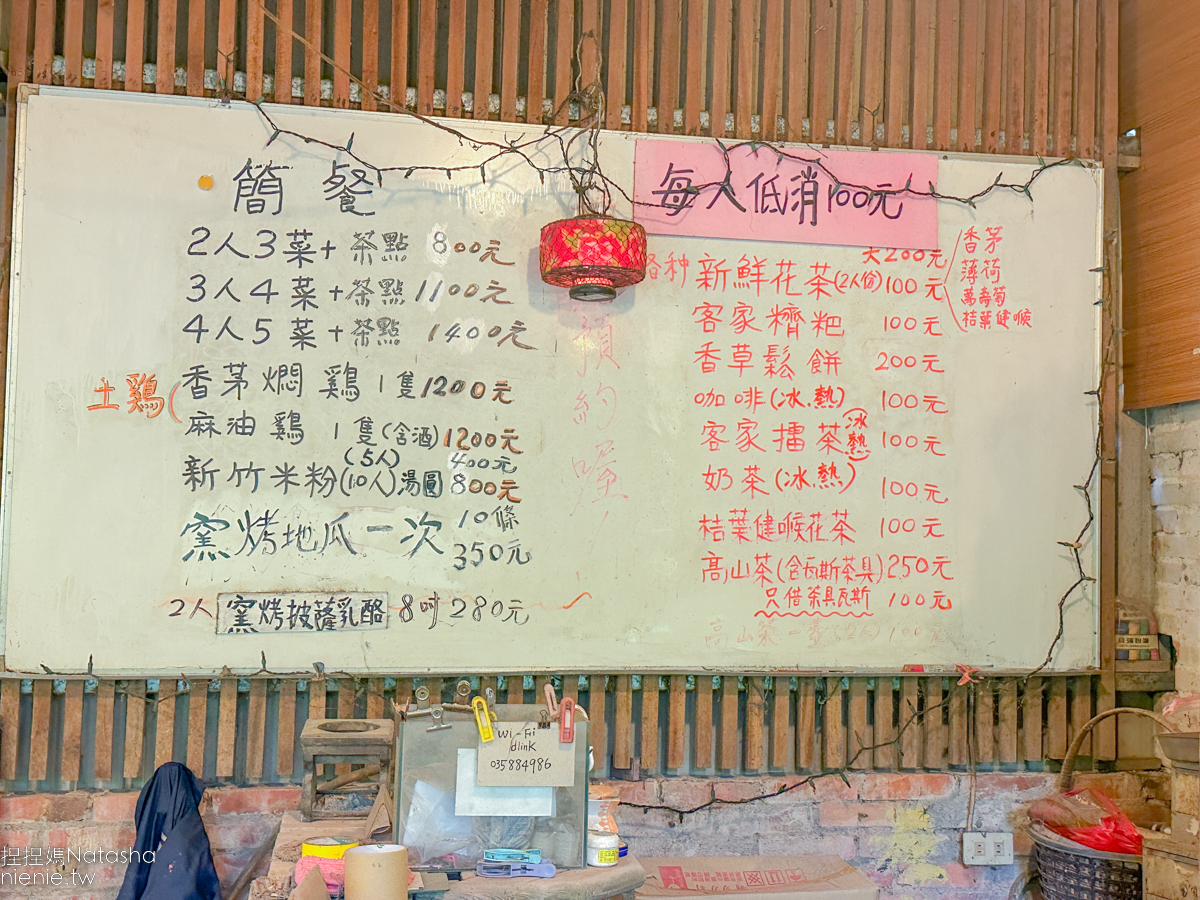 簡餐
2人3菜+茶點 800元
3人4菜+茶點 1100元
4人5菜+茶點 1400元
土鷄(
香茅燜鷄 1隻1200元
麻油鷄 1隻(含酒)1200元
(5人) 400元
新竹米粉(10人)湯圓800元
窯烤地瓜一次 10條
350元
2人 窯烤披薩乳酪 8吋 280元
預約喔!
每人低消100元
大200元
各种 新鮮花茶(2人份)100元
香茅
薄荷
萬壽菊
桔葉健喉
客家糍粑 100元
香草鬆餅 200元
咖啡(冰.熱) 100元
客家擂茶(冰熱) 100元
奶茶(冰.熱) 100元
桔葉健喉花茶 100元
高山茶(含瓦斯茶具)250元
只借茶具瓦斯 100元
高山茶一壺(2人)100元
Wi-Fi
dlink
035884986
捏捏媽Natasha
nienie.tw